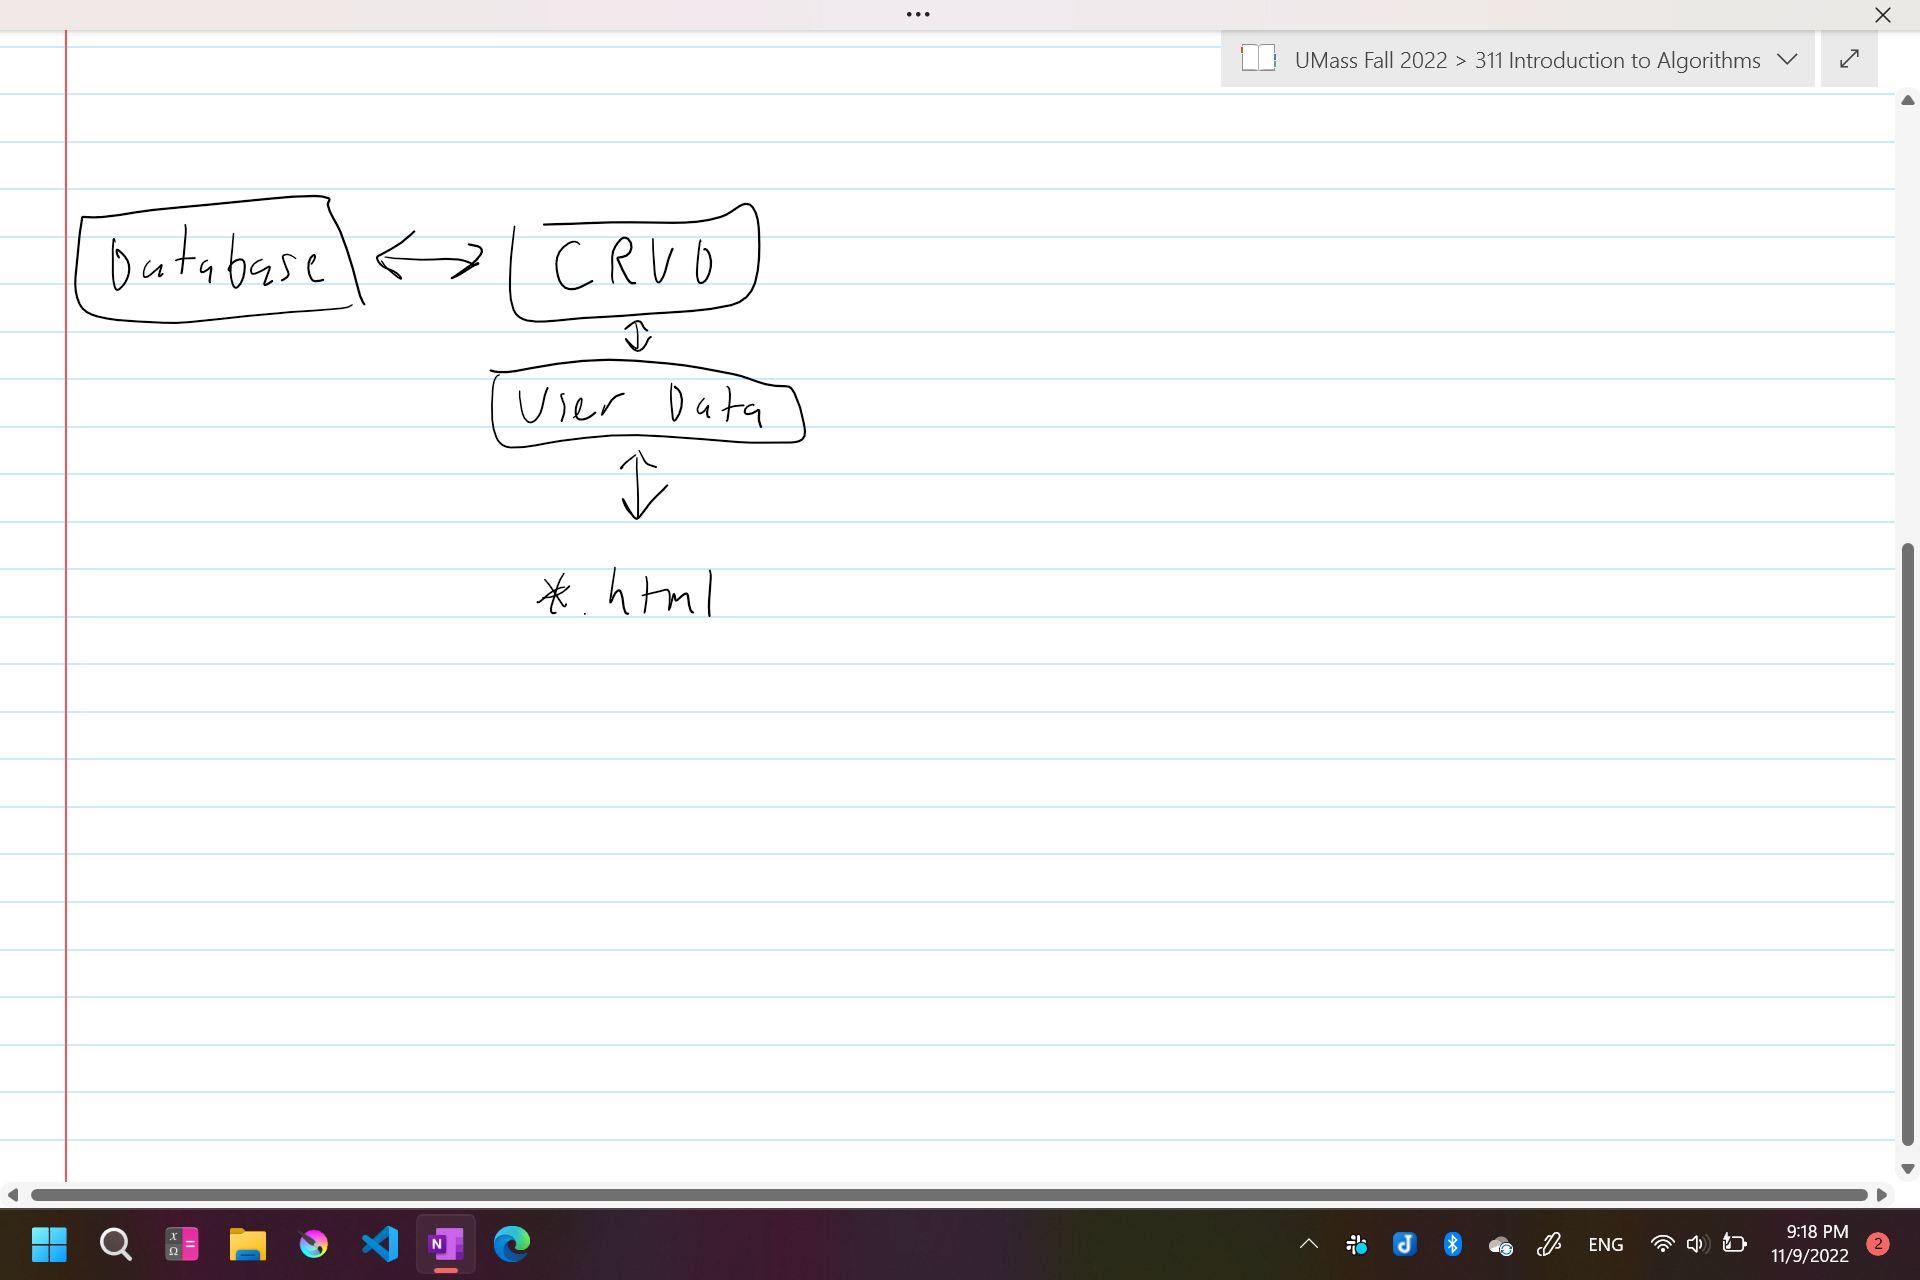 UMass Fall 2022 > 311 Introduction to Algorithms
Database
CRUD
User Data
*.html
ENG
9:18 PM
11/9/2022
2